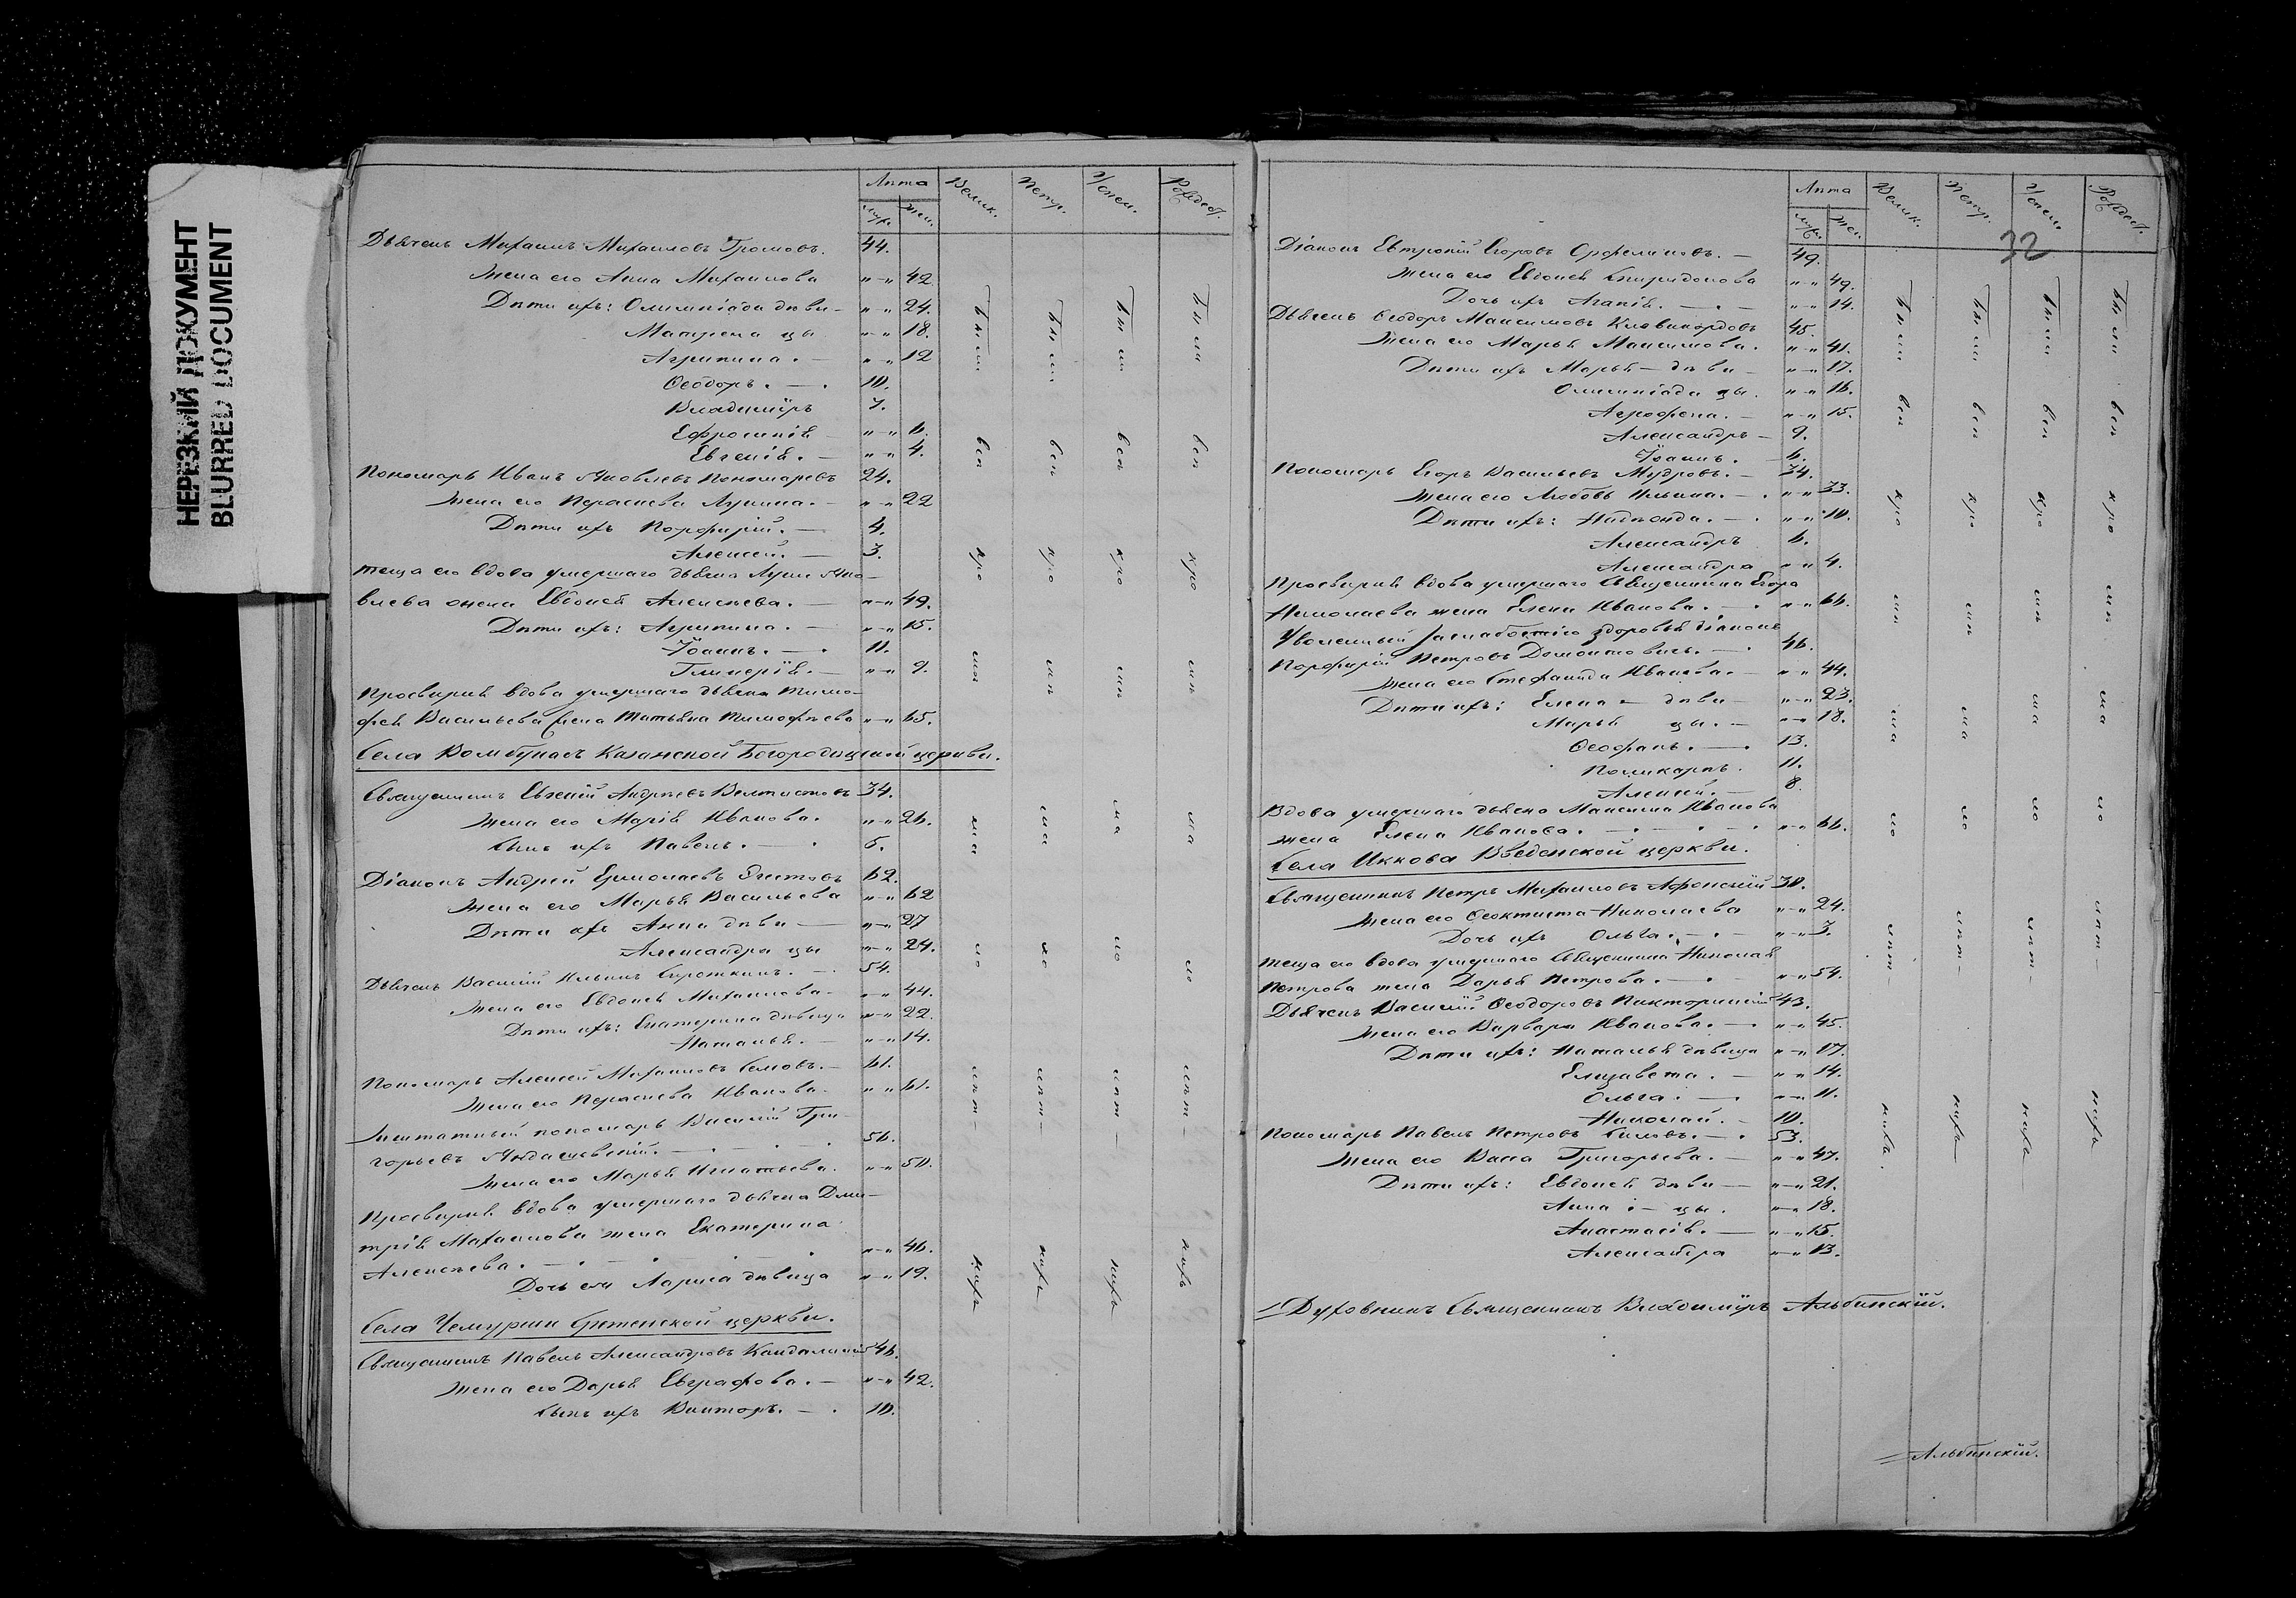 НЕРЕЗКИЙ ДОКУМЕНТ
BLURRED DOCUMENT
Лѣта Велик. Петр. Успен. Рождест.
муж. жен.
Дьячекъ Михаилъ Михаиловъ Громовъ. 44.
Жена его Анна Михаилова „—„ 42.
Дѣти ихъ: Олимпіада дѣви— „—„ 24.
Матрена цы „—„ 18.
Агрипина. — „—„ 12
Ѳеодоръ. — . 10.
Владиміръ 7.
Ефросинія — „—„ 6.
Евгенія. — „—„ 4.
Пономарь Иванъ Яковлевъ Пономаревъ 24.
Жена его Параскева Лукина. — „—„ 22
Дѣти ихъ Порфирій. — 4.
Алексей. — 3.
Теща его вдова умершаго дьячка Луки Яко—
влева жена Евдокія Алексѣева. — „—„ 49.
Дѣти ихъ: Агрипина. — „—„ 15.
Іоаннъ. — . 11.
Гликерія. — „—„ 9.
Просвирня вдова умершаго дьячка Тимо—
фея Васильева жена Татьяна Тимофѣева „—„ 65.
Села Помбунасъ Казанской Богородицкой церкви.
Священникъ Евгеній Андреевъ 34.
Жена его Марія Иванова. „—„ 26.
Сынъ ихъ Павелъ. — . 5.
Діаконъ Андрей Ермолаевъ 62.
Жена его Марья Васильева „—„ 62
Дѣти ихъ Анна дѣви — „—„ 27
Александра цы „—„ 24.
Дьячекъ Василій Ильинъ Сироткинъ. — . 54.
Жена его Евдокія Михаилова — „—„ 44.
Дѣти ихъ: Екатерина дѣвица „—„ 22.
Наталья. — „—„ 14.
Пономарь Алексей Михаиловъ 61.
Жена его Параскева Иванова — „—„ 61.
Заштатный пономарь Василій Гри—
горьевъ 56.
Жена его Марья Игнатьева. „—„ 50.
Просвирня вдова умершаго дьячка Дми—
трія Михаилова жена Екатерина
Алексѣева. — . — . — . „—„ 46.
Дочь ея Лариса дѣвица „—„ 19.
Села Чемурши Срѣтенской церкви.
Священникъ Павелъ Александровъ 46.
Жена его Дарья Евграфова. — „—„ 42.
Сынъ ихъ Викторъ. — . 10.
Бы ли всѣ кро мѣ ма ло лѣт— нихъ
Бы ли всѣ кро мѣ ма ло лѣт— нихъ
Бы ли всѣ кро мѣ ма ло лѣт— нихъ
Бы ли всѣ кро мѣ ма ло лѣт— нихъ
Лѣта Велик. Петр. Успен. Рождест.
муж. жен.
32
Діаконъ Евтропій Егоровъ — 49.
Жена его Евдокія Спиридонова „—„ 49.
Дочь ихъ Агапія. — . — „—„ 14.
Дьячекъ Ѳеодоръ Максимовъ Клавикордовъ 45.
Жена его Марья Максимова. „—„ 41.
Дѣти ихъ Марья — дѣви — „—„ 17.
Олимпіада цы. „—„ 16.
Агрофена. — „—„ 15.
Александръ — 9.
Іоаннъ. — 6.
Пономарь Егоръ Васильевъ Мудровъ. — 34.
Жена его Любовь Ильина. — . „—„ 33.
Дѣти ихъ: Надежда. — . „—„ 10.
Александръ 6.
Александра „—„ 4.
Просвирня вдова умершаго Священника Егора
Николаева жена Елена Иванова. — . „—„ 66.
Уволенный за слабостію здоровья діаконъ
Порфирій Петровъ 46.
Жена его Стефанида Иванова. — „—„ 44.
Дѣти ихъ: Елена — дѣви — „—„ 23.
Марья цы. — „—„ 18.
Ѳеофанъ. — . 13.
Поликарпъ. 11.
Алексей. — 8.
Вдова умершаго дьячка Максима Иванова
жена Елена Иванова. — . — . — . „—„ 66.
Села Иккова Введенской церкви.
Священникъ Петръ Михаиловъ Афонскій 30.
Жена его Ѳеоктиста Николаева „—„ 24.
Дочь ихъ Ольга. — . — „—„ 3.
Теща его вдова умершаго Священника Николая
Петрова жена Дарья Петрова. — . „—„ 54.
Дьячекъ Василій Ѳеодоровъ Пикторинскій 43.
Жена его Варвара Иванова. — . „—„ 45.
Дѣти ихъ: Наталья дѣвица „—„ 17.
Елизавета. — „—„ 14.
Ольга. — . „—„ 11.
Николай. — 10.
Пономарь Павелъ Петровъ 53.
Жена его Васса Григорьева. — „—„ 47.
Дѣти ихъ: Евдокія дѣви — „—„ 21.
Анна : — цы. „—„ 18.
Анастасія. — „—„ 15.
Александра „—„ 13.
Бы ли всѣ кро мѣ ма ло лѣт— нихъ.
Бы ли всѣ кро мѣ ма ло лѣт— нихъ
Бы ли всѣ кро мѣ ма ло лѣт— нихъ
Бы ли всѣ кро мѣ ма ло лѣт— нихъ
Духовникъ Священникъ Владиміръ Альбинскій.
Альбинскій.